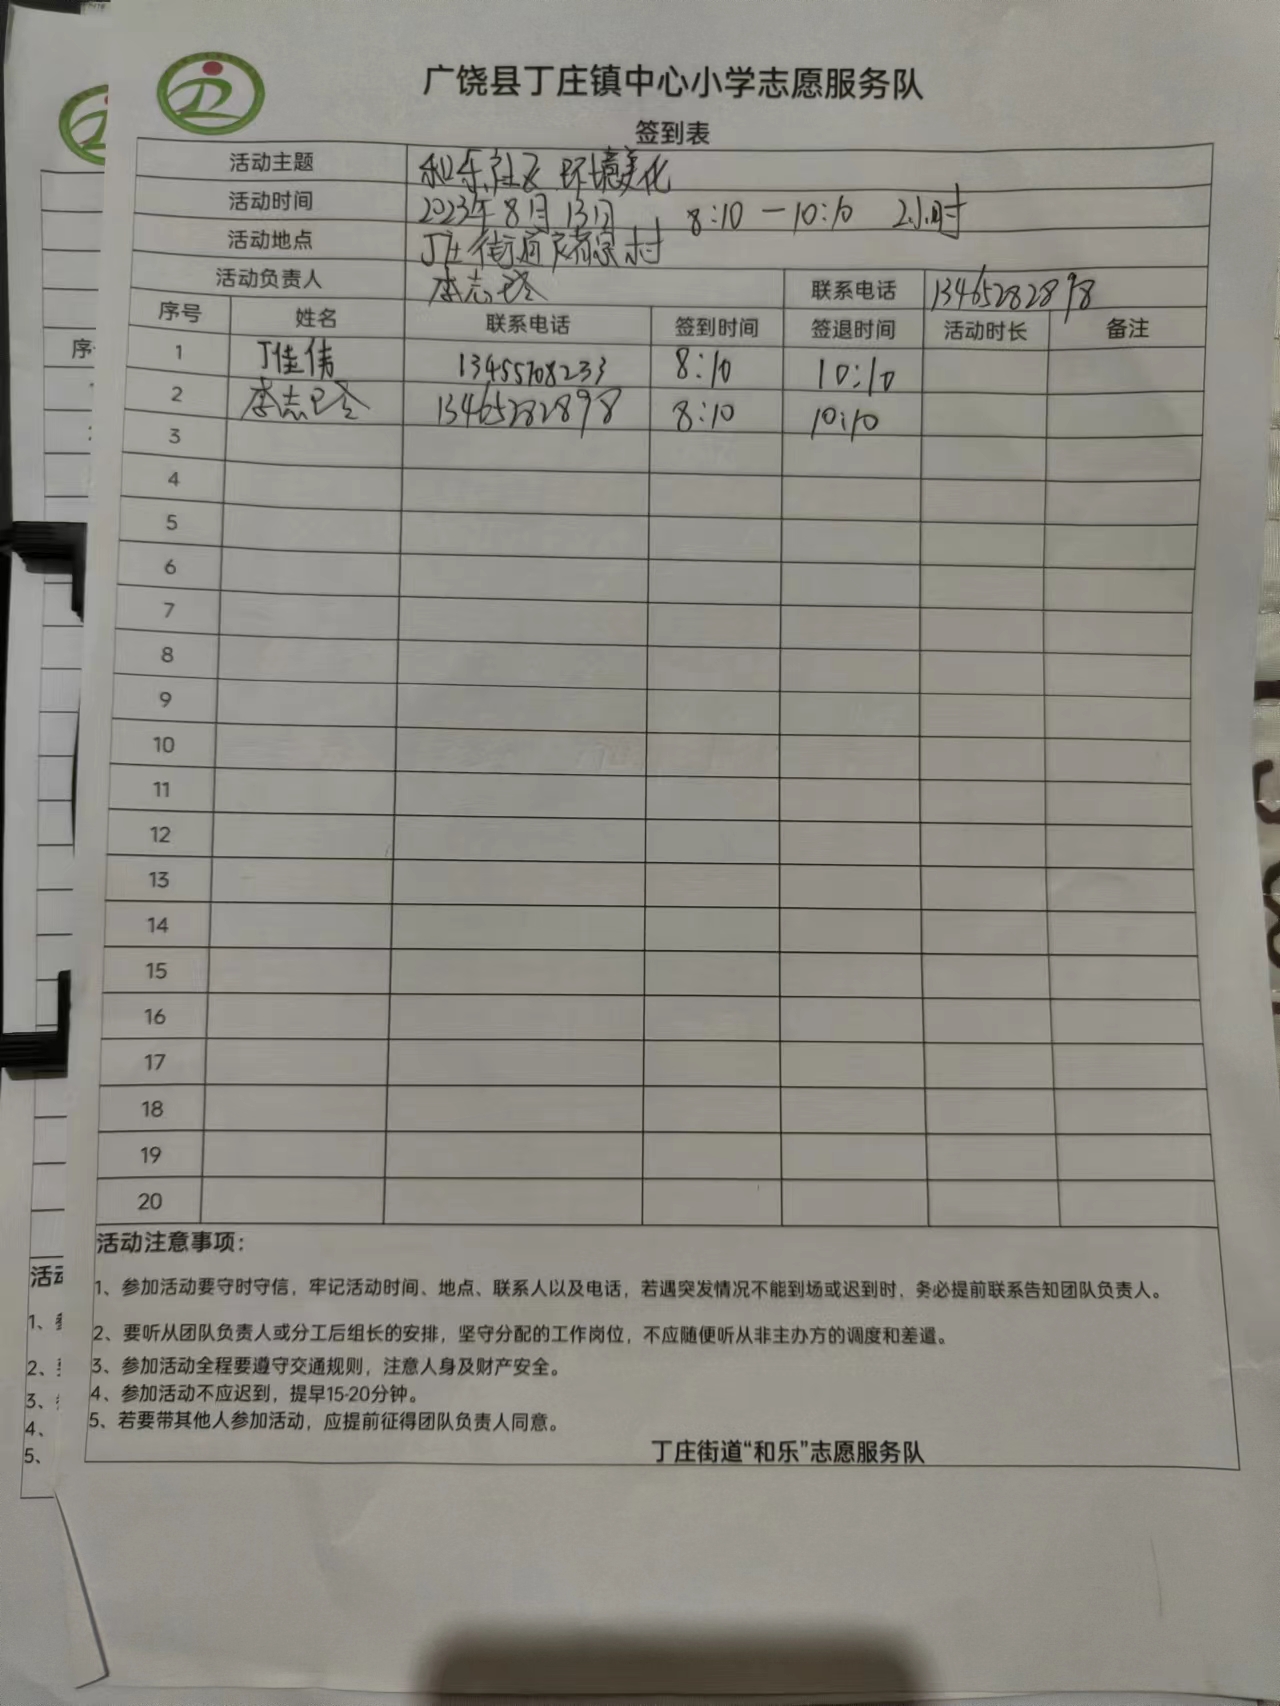 广饶县丁庄镇中心小学志愿服务队
签到表
活动主题 和乐社区 环境美化
活动时间 2023年8月13日 8:10—10:10 2小时
活动地点 丁庄街道 村
活动负责人 李志玲 联系电话 13465282898
序号 姓名 联系电话 签到时间 签退时间 活动时长 备注
1 丁佳伟 13455708233 8:10 10:10
2 李志玲 13465282898 8:10 10:10
3
4
5
6
7
8
9
10
11
12
13
14
15
16
17
18
19
20
活动注意事项：
1、参加活动要守时守信，牢记活动时间、地点、联系人以及电话，若遇突发情况不能到场或迟到时，务必提前联系告知团队负责人。
2、要听从团队负责人或分工后组长的安排，坚守分配的工作岗位，不应随便听从非主办方的调度和差遣。
3、参加活动全程要遵守交通规则，注意人身及财产安全。
4、参加活动不应迟到，提早15-20分钟。
5、若要带其他人参加活动，应提前征得团队负责人同意。
丁庄街道“和乐”志愿服务队